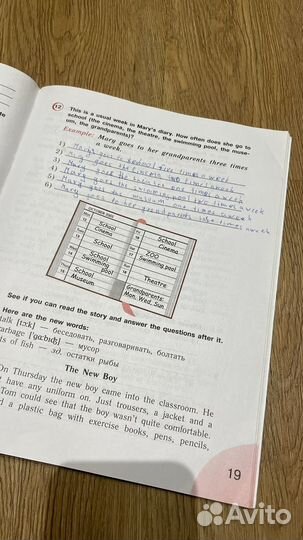 12 This is a usual week in Mary's diary. How often does she go to
school (the cinema, the theatre, the swimming pool, the muse-
um, the grandparents)?
Example: Mary goes to her grandparents three times
a week.
1) Mary goes to school five times a week
2) Mary goes two times a week
3) Mary goes the one times a week
4) Mary goes the pool two times a week
5) Mary goes museum one times a week
6) Mary goes to her grandparents times a week
School
Cinema
School
School
Swimming
pool
School
Museum
School
Cinema
ZOO
Swimming pool
Theatre
Grandparents:
Mon, Wed, Sun
See if you can read the story and answer the questions after it.
Here are the new words:
talk [tɔ:k] — беседовать, разговаривать, болтать
garbage [ˈgɑ:bɪdʒ] — мусор
of fish — зд. остатки рыбы
The New Boy
On Thursday the new boy came into the classroom. He
have any uniform on. Just trousers, a jacket and a
Tom could see that the boy wasn't quite comfortable.
a plastic bag with exercise books, pens, pencils,
19
Avito